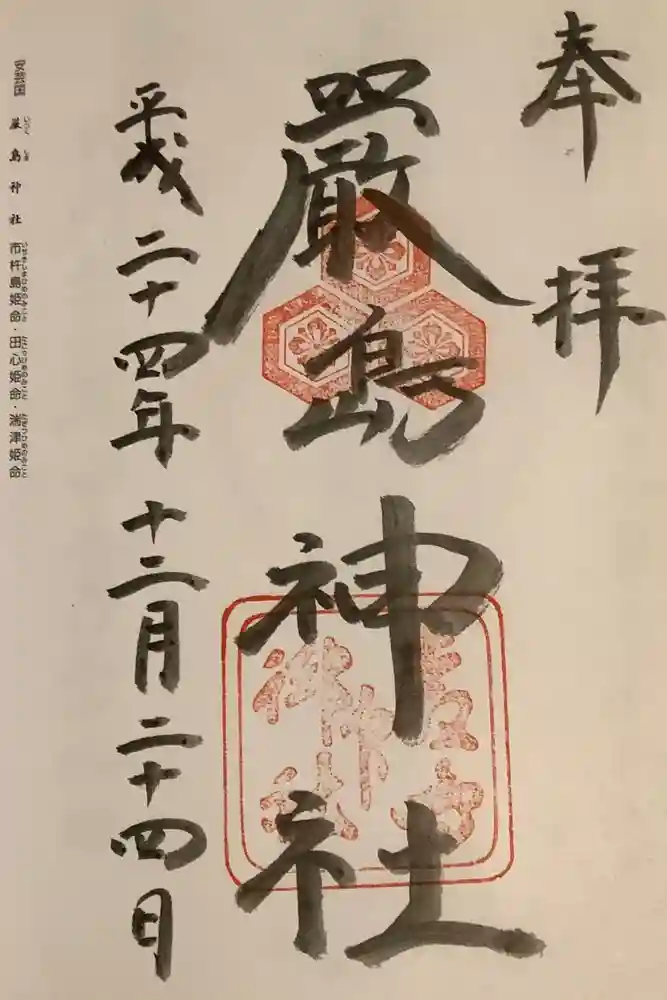 奉拝
厳島神社
平成二十四年十二月二十四日
安芸国 厳島神社 市杵島姫命・田心姫命・湍津姫命